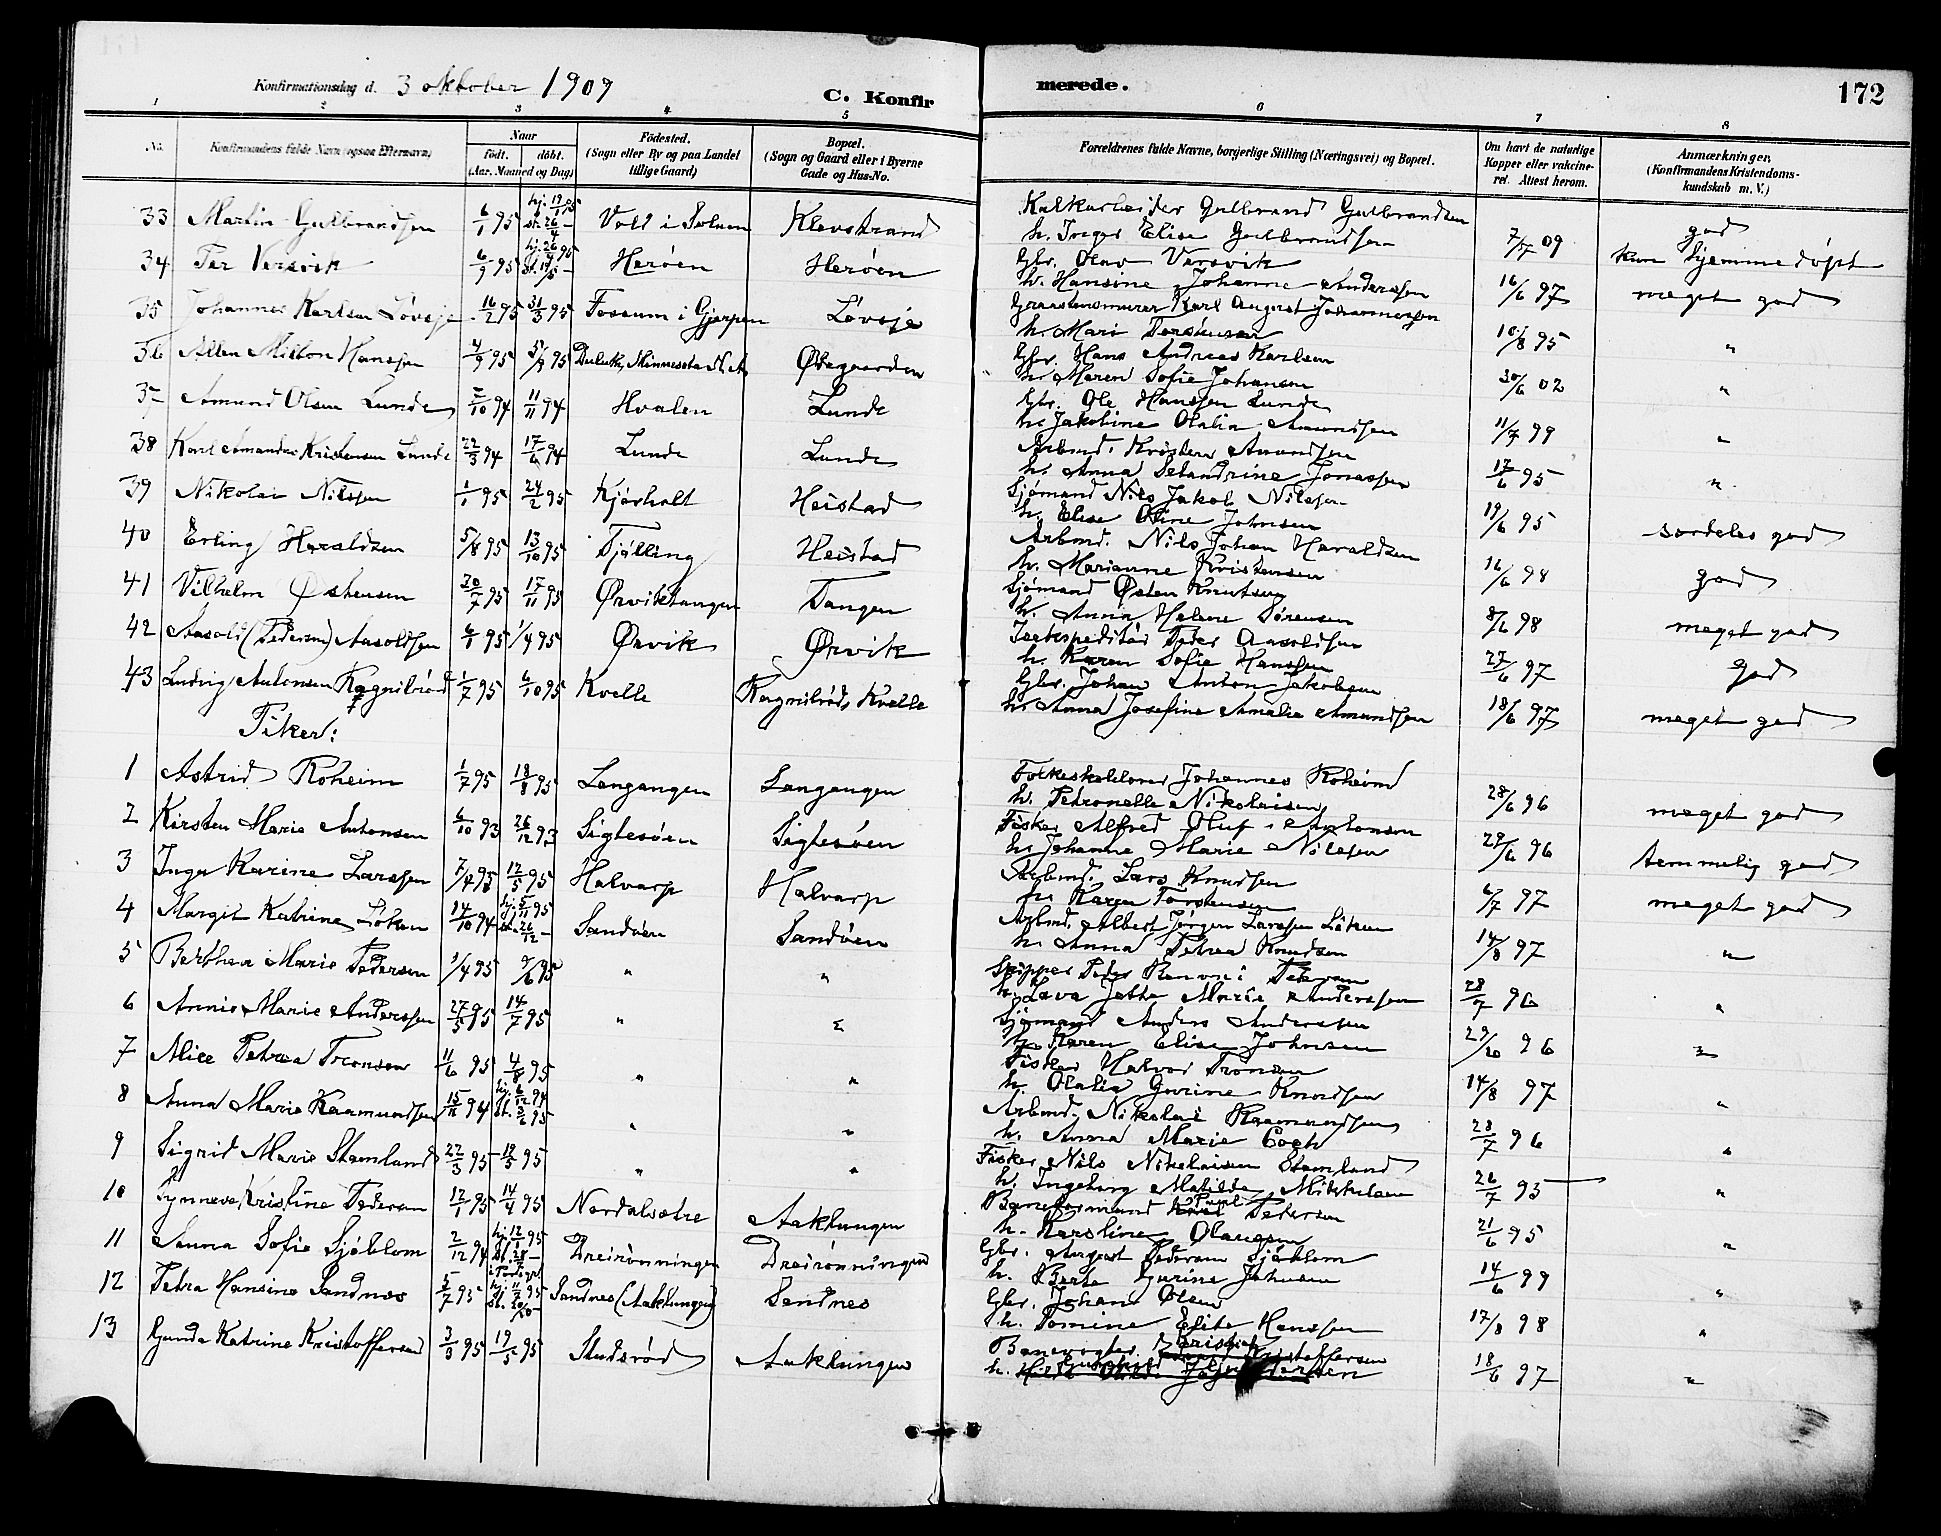 Konfirmationsdag d. 3 oktober 1909
C. Konfirmerede.
172
1 2 3 4 5 6 7 8
No. Konfirmandens fulde Navn (ogsaa Efternavn) Naar født. døbt. (Aar, Maaned og Dag) Fødested. (Sogn eller By og paa Landet tillige Gaard) Bopæl. (Sogn og Gaard eller i Byerne Gade og Hus-No. Forældrenes fulde Navne, borgerlige Stilling (Næringsvei) og Bopæl. Om havt de naturlige Kopper eller vakcineret. Attest herom. Anmærkninger, (Konfirmandens Kristendomskundskab m. V.)
33 Martin Gulbrandsen 6/1 95 hj. 19/1 95 st. 26/4 - Vold i Solum Klevstrand Kalkarbeider Gulbrand Gulbrandsen 7/7 09 god
h. Inger Elise Gulbrandsen kun hjemmedøpt
34 Per Versvik 6/9 95 Herøen Herøen Gbr. Olav Versvik
h. Hansine Johanne Anderssen 16/6 97 meget god
35 Johannes Karlsen Løvsjø 16/2 95 31/3 95 Fossum i Gjerpen Løvsjø Graastensmurer Karl August Johannessen
h. Mari Torstensen 10/8 95 "
36 Allen Milton Hanssen 4/9 95 5/9 95 Duluth, Minnesota N. A. Østgaarden Gbr. Hans Andreas Karlsen
h. Maren Sofie Johansen 30/6 02 "
37 Amund Olsen Lunde 5/10 94 11/11 94 Hvalen Lunde Gbr. Ole Hanssen Lunde
h. Jakobine Olalia Amundsen 11/7 99 "
38 Karl Amandus Kristensen Lunde 22/3 94 17/6 94 Lunde Lunde Arbmd. Kristen Amundsen
h. Anna Selandrine Jonassen 17/6 95 "
39 Nikolai Nilssen 1/1 95 24/2 95 Kjørholt Heistad Sjømand Nils Jakob Nilssen
h. Elise Oline Johnsen 19/6 95 særdeles god
40 Erling Haraldsen 5/8 95 13/10 95 Tjølling Heistad Arbmd. Nils Johan Haraldsen
h. Marianne Kristensen 16/6 98 god
41 Vilhelm Østensen 20/7 95 17/11 95 Ørviktangen Tangen Sjømand Østen Knutsen
h. Anna Helene Sørensen 8/6 98 meget god
42 Aasold (Pedersen) Aasoldsen 6/1 95 1/4 95 Ørvik Ørvik Isekspeditør Peder Aasoldsen
h. Karen Sofie Hanssen 27/6 97 god
43 Ludvig Antonsen Ragnilrød 1/7 95 6/10 95 Kvelle Ragnilrød, Kvelle Gbr. Johan Anton Jakobsen
h. Anna Josefine Amalie Amundsen 18/6 97 meget god
Piker:
1 Astrid Roheim 1/7 95 18/8 95 Langangen Langangen Folkeskolelærer Johannes Roheim
h. Petronelle Nikolaisen 28/6 96 meget god
2 Kirsten Marie Antonsen 6/10 93 26/12 93 Siglesøen Siglesøen Fisker Alfred Oluf Antonsen
h. Johanne Marie Nilssen 29/6 96 temmelig god
3 Inga Karine Larssen 12/5 95 Halvarp Halvarp Arbmd. Lars Knudsen
h. Karen Torstensen 6/7 97 meget god
4 Margit Katrine Løken 14/10 94 Sandøen Sandøen Arbmd. Albert Jørgen Larssen Løken
h. Anna Petrea Knudsen 14/8 97 "
5 Berthea Marie Pedersen 1/4 95 9/6 95 " " Skipper Peder Pedersen
h. Lava Jette Marie Anderssen 28/7 96 "
6 Annie Marie Anderssen 27/5 95 14/7 95 " " Sjømand Anders Anderssen
h. Karen Elise Johnsen 29/10 96 "
7 Alice Petrea Tronsen 11/6 95 4/8 95 " " Fisker Halvor Tronsen
h. Olalia Gurine Knudsen 14/8 97 "
8 Anna Marie Raamundsen 15/11 94 hj. 6/12 94 st. 3/2 95 " " Arbmd. Nikolai Raamundsen
h. Anna Marie Coch 28/7 96 "
9 Sigrid Marie Stamland 22/3 95 12/5 95 " " Fisker Nils Nikolaisen Stamland
h. Ingeborg Matilde Mikkelsen 26/7 95 "
10 Synneve Kristine Pedersen 12/1 95 14/4 95 Nordalsetre Aaklungen Baneformand Paul Pedersen
h. Karoline Olausen 21/6 95 "
11 Anna Sofie Sjøblom 2/12 94 Dreirønningen Dreirønningen Gbr. August Pedersen Sjøblom
h. Berte Gurine Johnsen 14/6 99 "
12 Petra Hansine Sandnes 5/7 95 Sandnes (Aaklungen) Sandnes Gbr. Johan Olsen
h. Tomine Elise Hanssen 17/8 98 "
13 Gunda Katrine Kristoffersen 3/3 95 19/5 95 Studsrød Aaklungen Banevogter Kristian Kristoffersen
h. 18/6 97 "